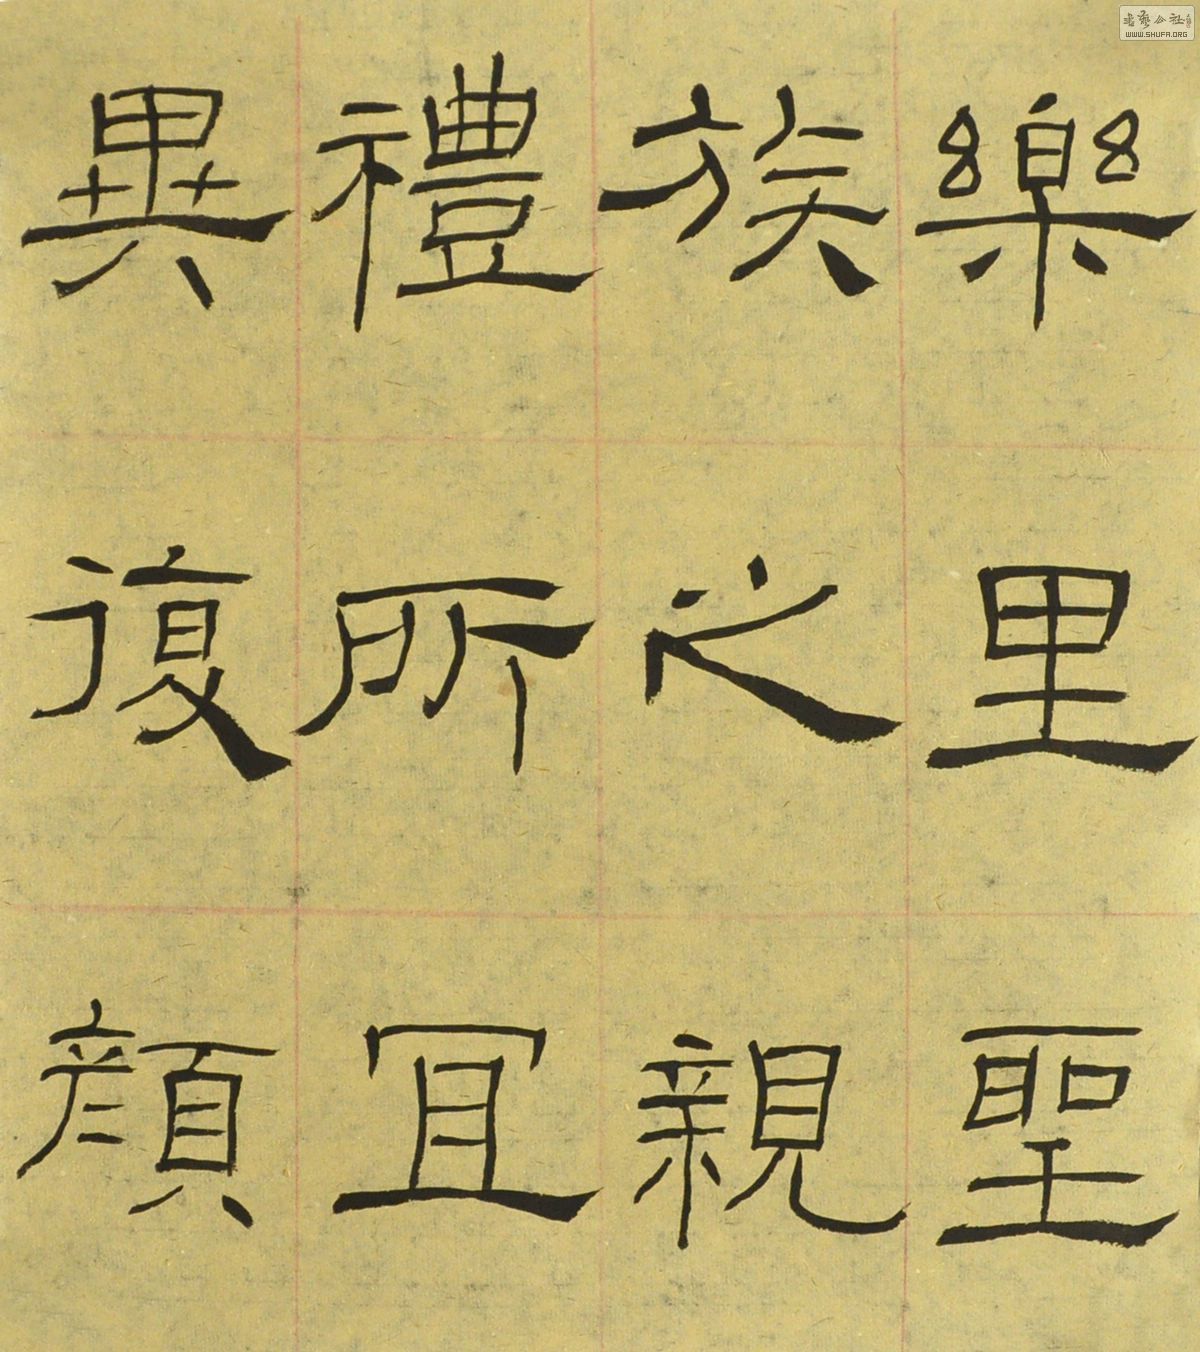 樂里聖
族之親
禮所宜
異復顏
書藝公社
WWW.SHUFA.ORG